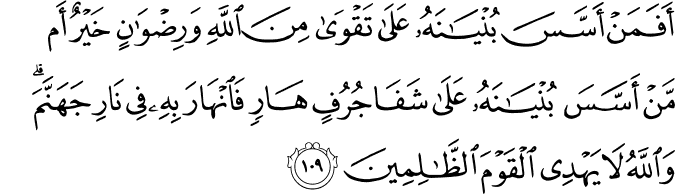 أَفَمَنْ أَسَّسَ بُنْيَـٰنَهُۥ عَلَىٰ تَقْوَىٰ مِنَ ٱللَّهِ وَرِضْوَٰنٍ خَيْرٌ أَم
مَّنْ أَسَّسَ بُنْيَـٰنَهُۥ عَلَىٰ شَفَا جُرُفٍ هَارٍ فَٱنْهَارَ بِهِۦ فِى نَارِ جَهَنَّمَ ۗ
وَٱللَّهُ لَا يَهْدِى ٱلْقَوْمَ ٱلظَّـٰلِمِينَ ١٠٩